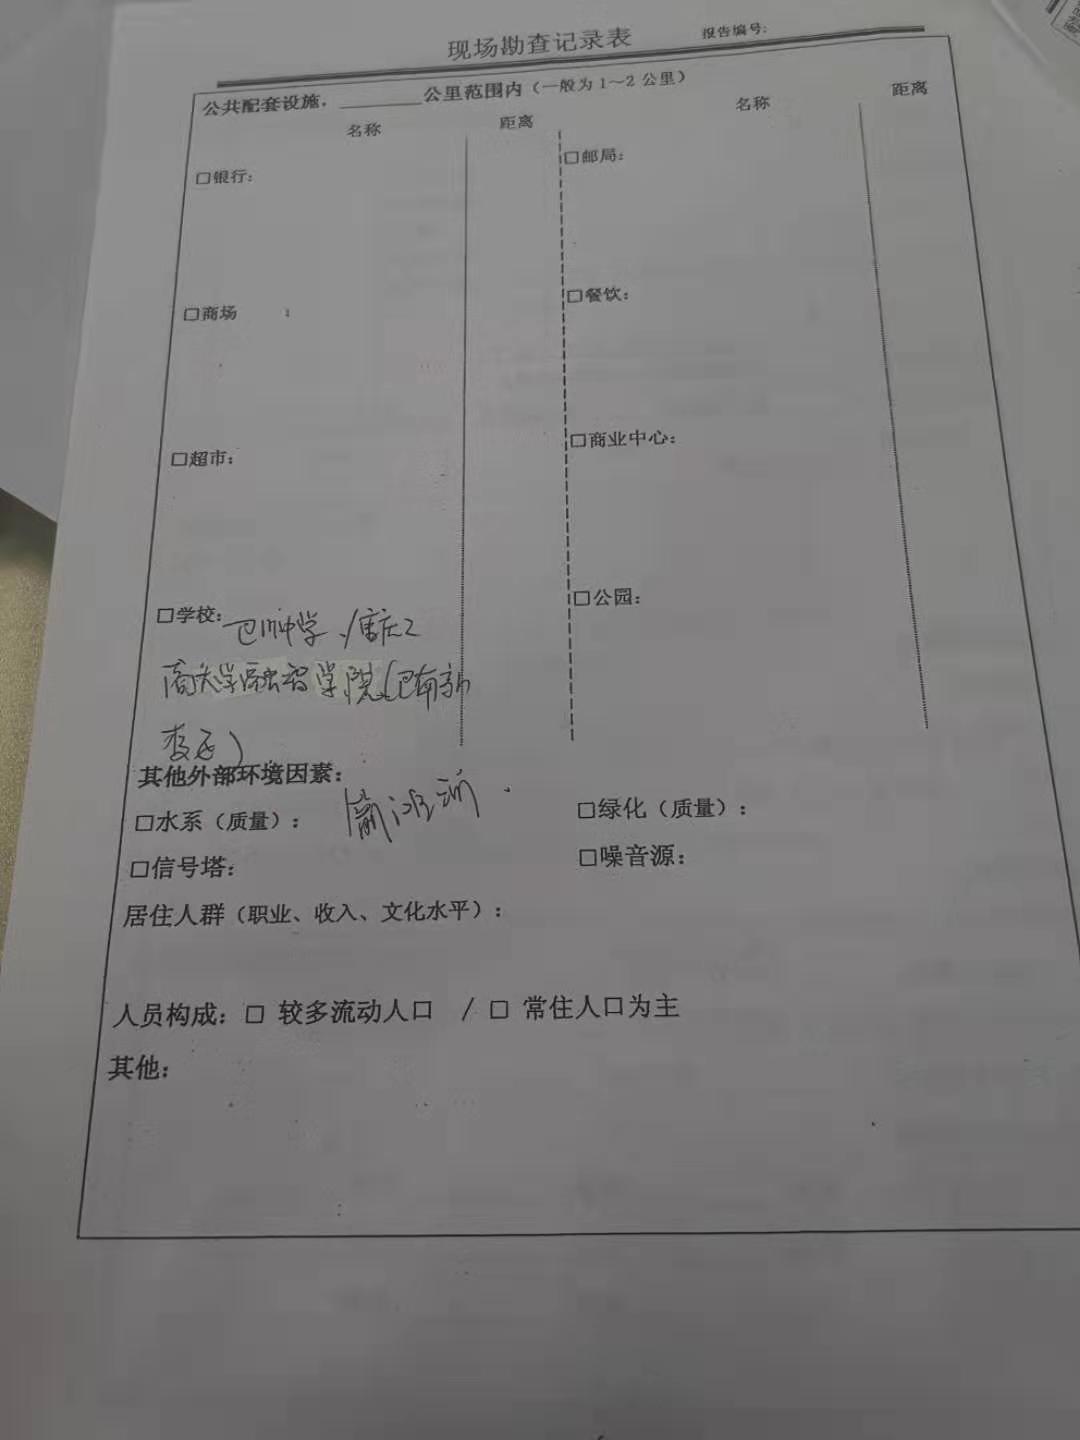 现场勘查记录表 报告编号:
公共配套设施，________公里范围内（一般为 1～2 公里）
名称 距离 名称 距离
□银行: □邮局:
□商场 : □餐饮:
□超市: □商业中心:
□学校: 巴川中学、重庆工 □公园:
商大学融智学院(巴南
校区)
其他外部环境因素:
□水系（质量）: □绿化（质量）:
□信号塔: □噪音源:
居住人群（职业、收入、文化水平）:
人员构成: □ 较多流动人口 / □ 常住人口为主
其他: